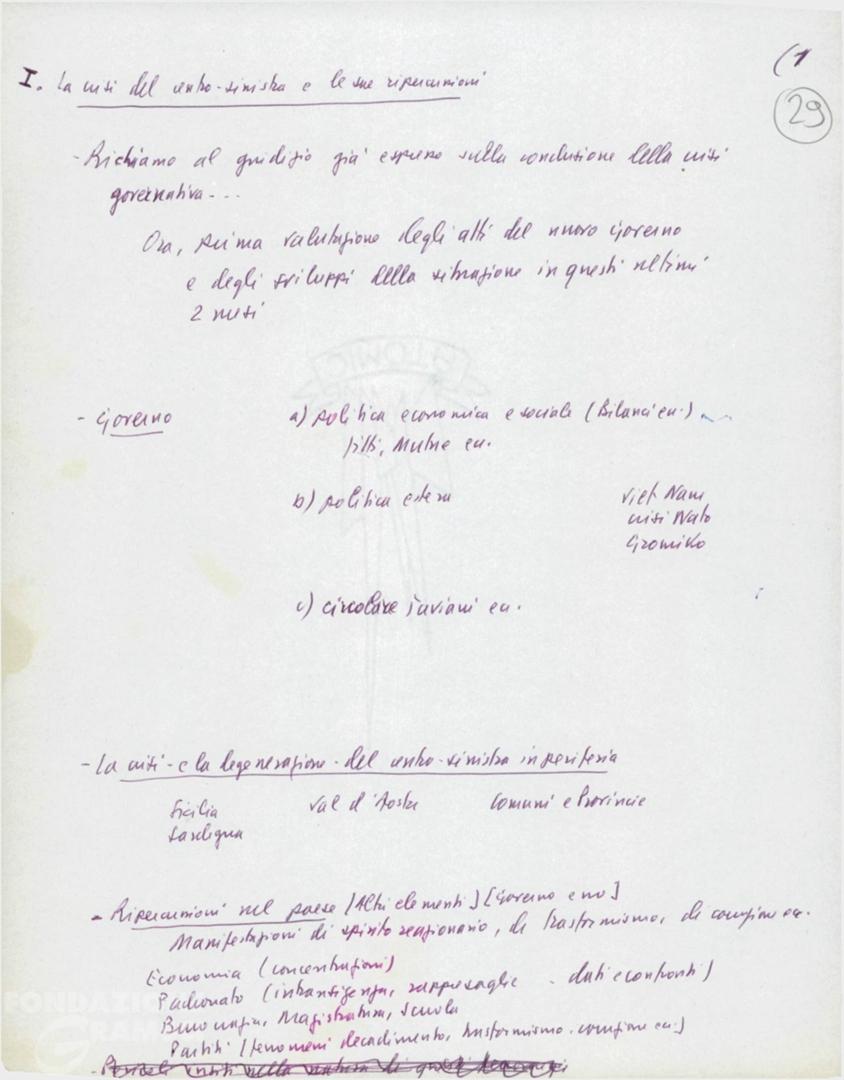 (1
29
I. La crisi del centro-sinistra e le sue ripercussioni
- Richiamo al giudizio già espresso sulla conclusione della crisi
governativa...
Ora, prima valutazione degli atti del nuovo Governo
e degli sviluppi della situazione in questi ultimi
2 mesi
- Governo a) politica economica e sociale (Bilanci ecc.)
fitti, Mutue ecc.
b) politica estera Viet Nam
crisi Nato
Gromiko
c) circolare Taviani ecc.
- La crisi - e la degenerazione - del centro-sinistra in periferia
Sicilia Val d'Aosta Comuni e Provincie
Sardegna
- Ripercussioni nel paese [Altri elementi] [Governo e no]
Manifestazioni di spirito reazionario, di trasformismo, di corruzione ecc.
Economia (concentrazioni)
Padronato (intransigenza, rappresaglie - dati e confronti)
Burocrazia, Magistratura, Scuola
Partiti (fenomeni decadimento, trasformismo - corruzione ecc.)
- Pericoli insiti nella natura di
FONDAZIO
GRAM